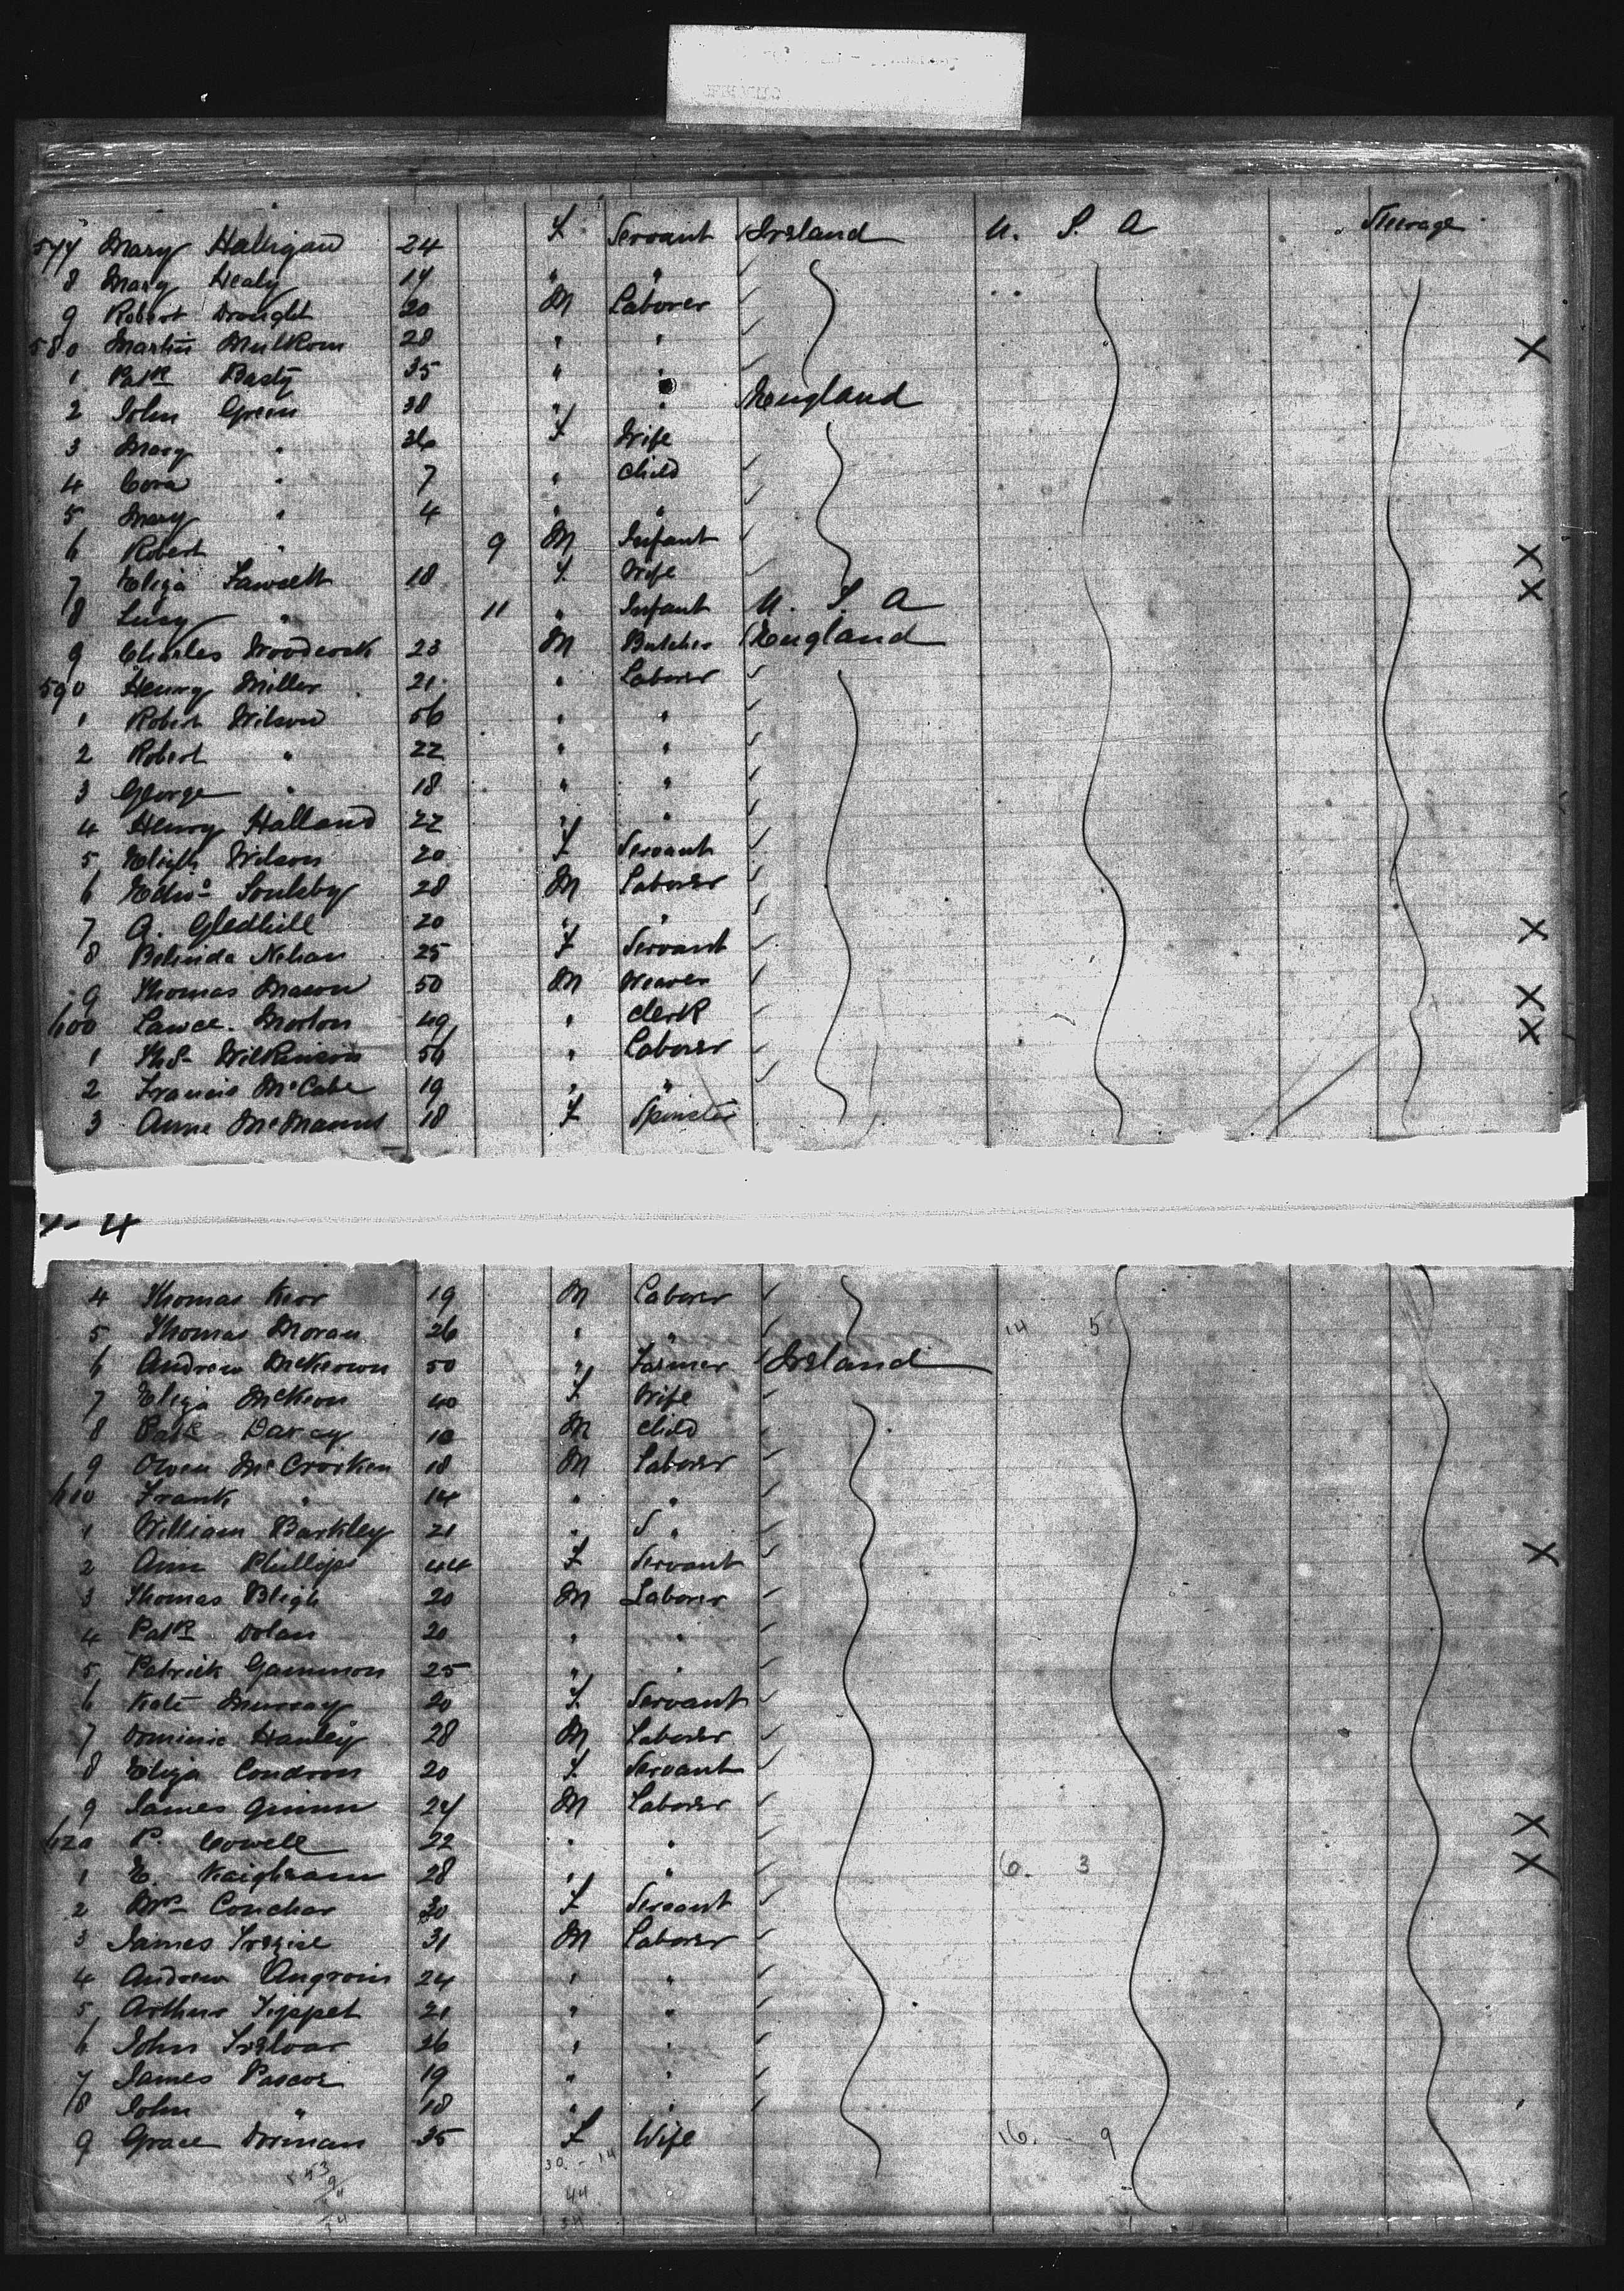 577 Mary Halligan 24 F Servant Ireland U. S. A Steerage
8 Mary Healy 14 " "
9 Robert Drought 20 M Laborer
580 Martin Mulkom 28 " "
1 Patk Basty 35 " "
2 John Green 38 " " England
3 Mary " 36 F Wife
4 Cora " 7 " Child
5 Mary " 4 " "
6 Robert " 9 M Infant
7 Eliza Fawcett 18 F Wife
8 Lucy " 11 " Infant U. S. A
9 Charles Woodcock 23 M Butcher England
590 Henry Miller 21 " Laborer
1 Robert Wilson 56 " "
2 Robert " 22 " "
3 George " 18 " "
4 Henry Halland 22 " "
5 Elizth Wilson 20 F Servant
6 Edwd Soulsby 28 M Laborer
7 A. Gledhill 20 " "
8 Belinda Nehan 25 F Servant
9 Thomas Mason 50 M Weaver
600 Lawce. Morton 49 " Clerk
1 Thos Wilkinson 54 " Laborer
2 Francis McCabe 19 " "
3 Anne McManus 18 F Spinster
4
4 Thomas Keor 19 M Laborer
5 Thomas Moran 26 " " 14 5
6 Andrew McKeown 50 " Farmer Ireland
7 Eliza McKeon 40 F Wife
8 Patk Darcy 10 M Child
9 Owen McCrorken 18 M Laborer
610 Frank " 14 " "
1 William Barkley 21 " "
2 Ann Phillips 44 F Servant
3 Thomas Bligh 20 M Laborer
4 Patk Dolan 20 " "
5 Patrick Gammon 25 " "
6 Kate Murray 20 F Servant
7 Dominic Hanley 28 M Laborer
8 Eliza Condron 20 F Servant
9 James Quinn 24 M Laborer
620 P. Cowell 22 " "
1 E. Kaighram 28 " " 6. 3
2 Mrs Conchar 30 F Servant
3 James Trezise 31 M Laborer
4 Andrew Angroin 24 " "
5 Arthur Tippet 21 " "
6 John Treloar 26 " "
7 James Pascoe 19 " "
8 John " 18 " "
9 Grace Dorman 35 F Wife 16. - 9
30 - 14
44